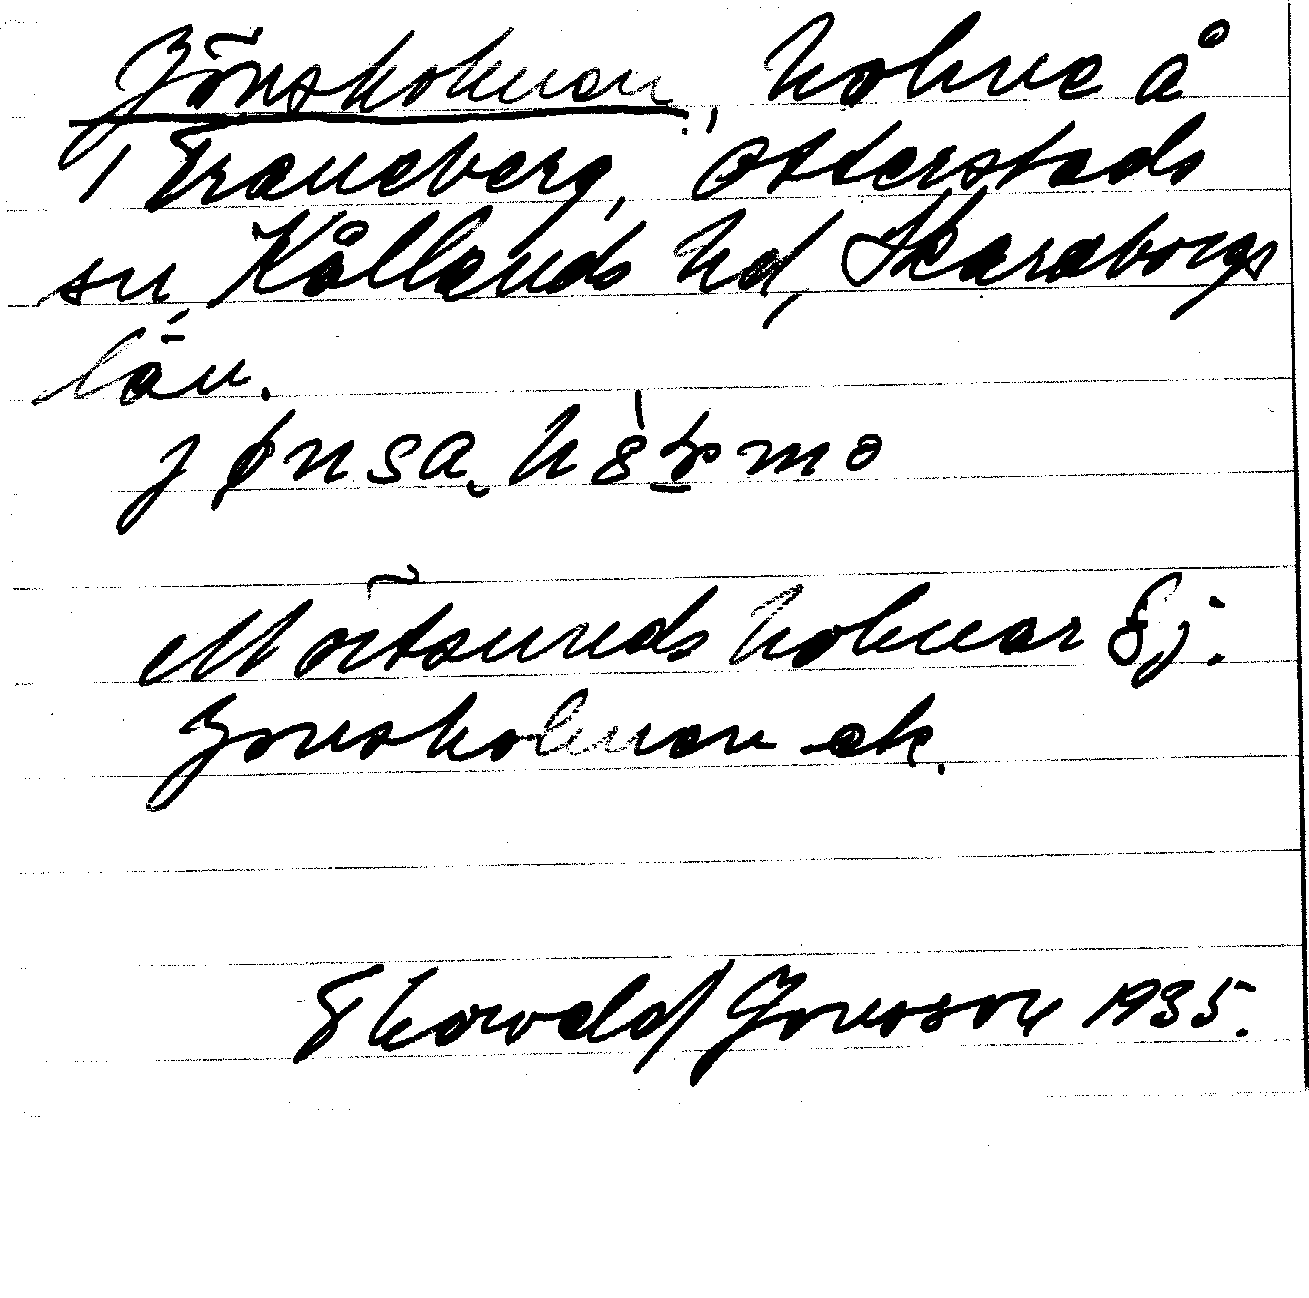 Jönsholmen, holme å
/ Traneberg, Otterstads
sn, Kållands hd, Skaraborgs
län.
Mörtsunds holmar Ej.
Jönsholmen ek.
Thorvald Jonsson 1935.